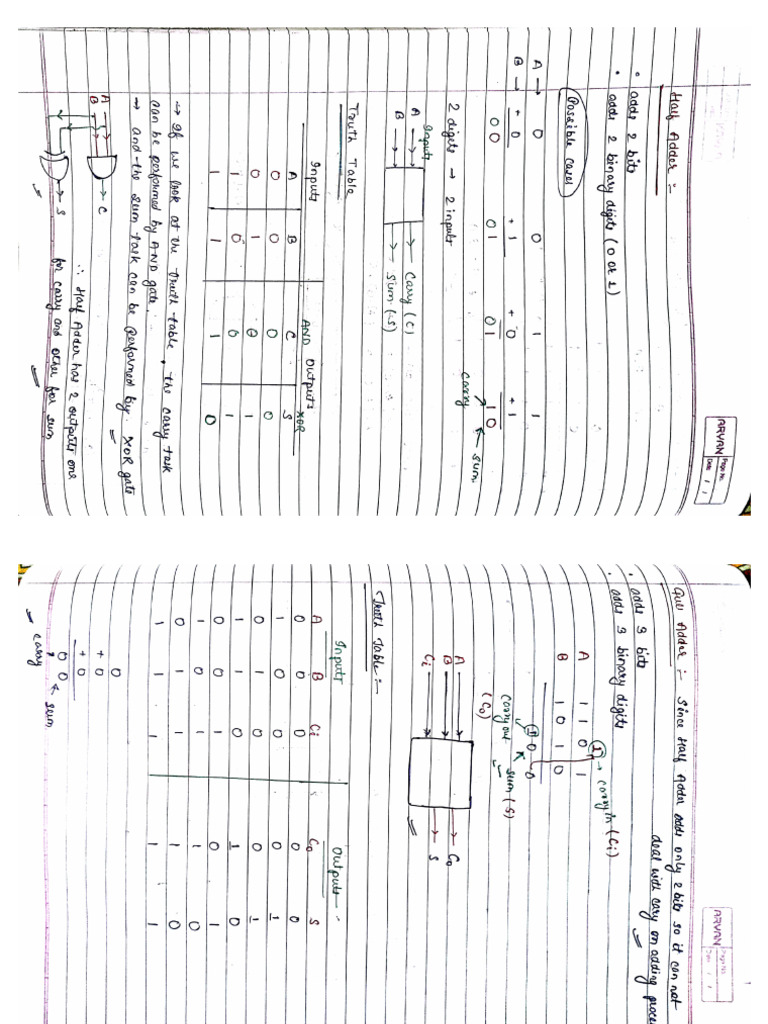 ARVAN
Page No.
Date / /
Half Adder :-
• adds 2 bits
• adds 2 binary digits (0 or 1)
Possible cases
A → 0 0 1 1
B → + 0 + 1 + 0 + 1
00 01 01 10 ← sum
carry
2 digits → 2 inputs
Inputs
A → → carry (C)
B → → sum (S)
Truth Table
Inputs AND Outputs XOR
A B C S
0 0 0 0
0 1 0 1
1 0 0 1
1 1 1 0
→ If we look at the truth table, the carry task
can be performed by AND gate.
→ and the sum task can be performed by XOR gate
A → C
B
→ S
∴ Half Adder has 2 outputs one
for carry and other for sum
ARVAN
Page No.
Date / /
Full Adder :- Since Half Adder adds only 2 bits so it can not
deal with cary on adding
• adds 3 bits
• adds 3 binary digits
1 → carry in (Ci)
A 1 1 0 1
B 1 0 1 0
1 0 0
carry out sum (S)
(Co)
A → → Co
B → → S
Ci →
Truth Table :-
Inputs Outputs :-
A B Ci Co S
0 0 0 0 0
1 0 0 0 1
0 1 0 0 1
1 1 0 1 0
0 0 1 0 1
1 0 1 1 0
0 1 1 1 0
1 1 1 1 1
0
+ 0
+ 0
0 0 ← sum
carry